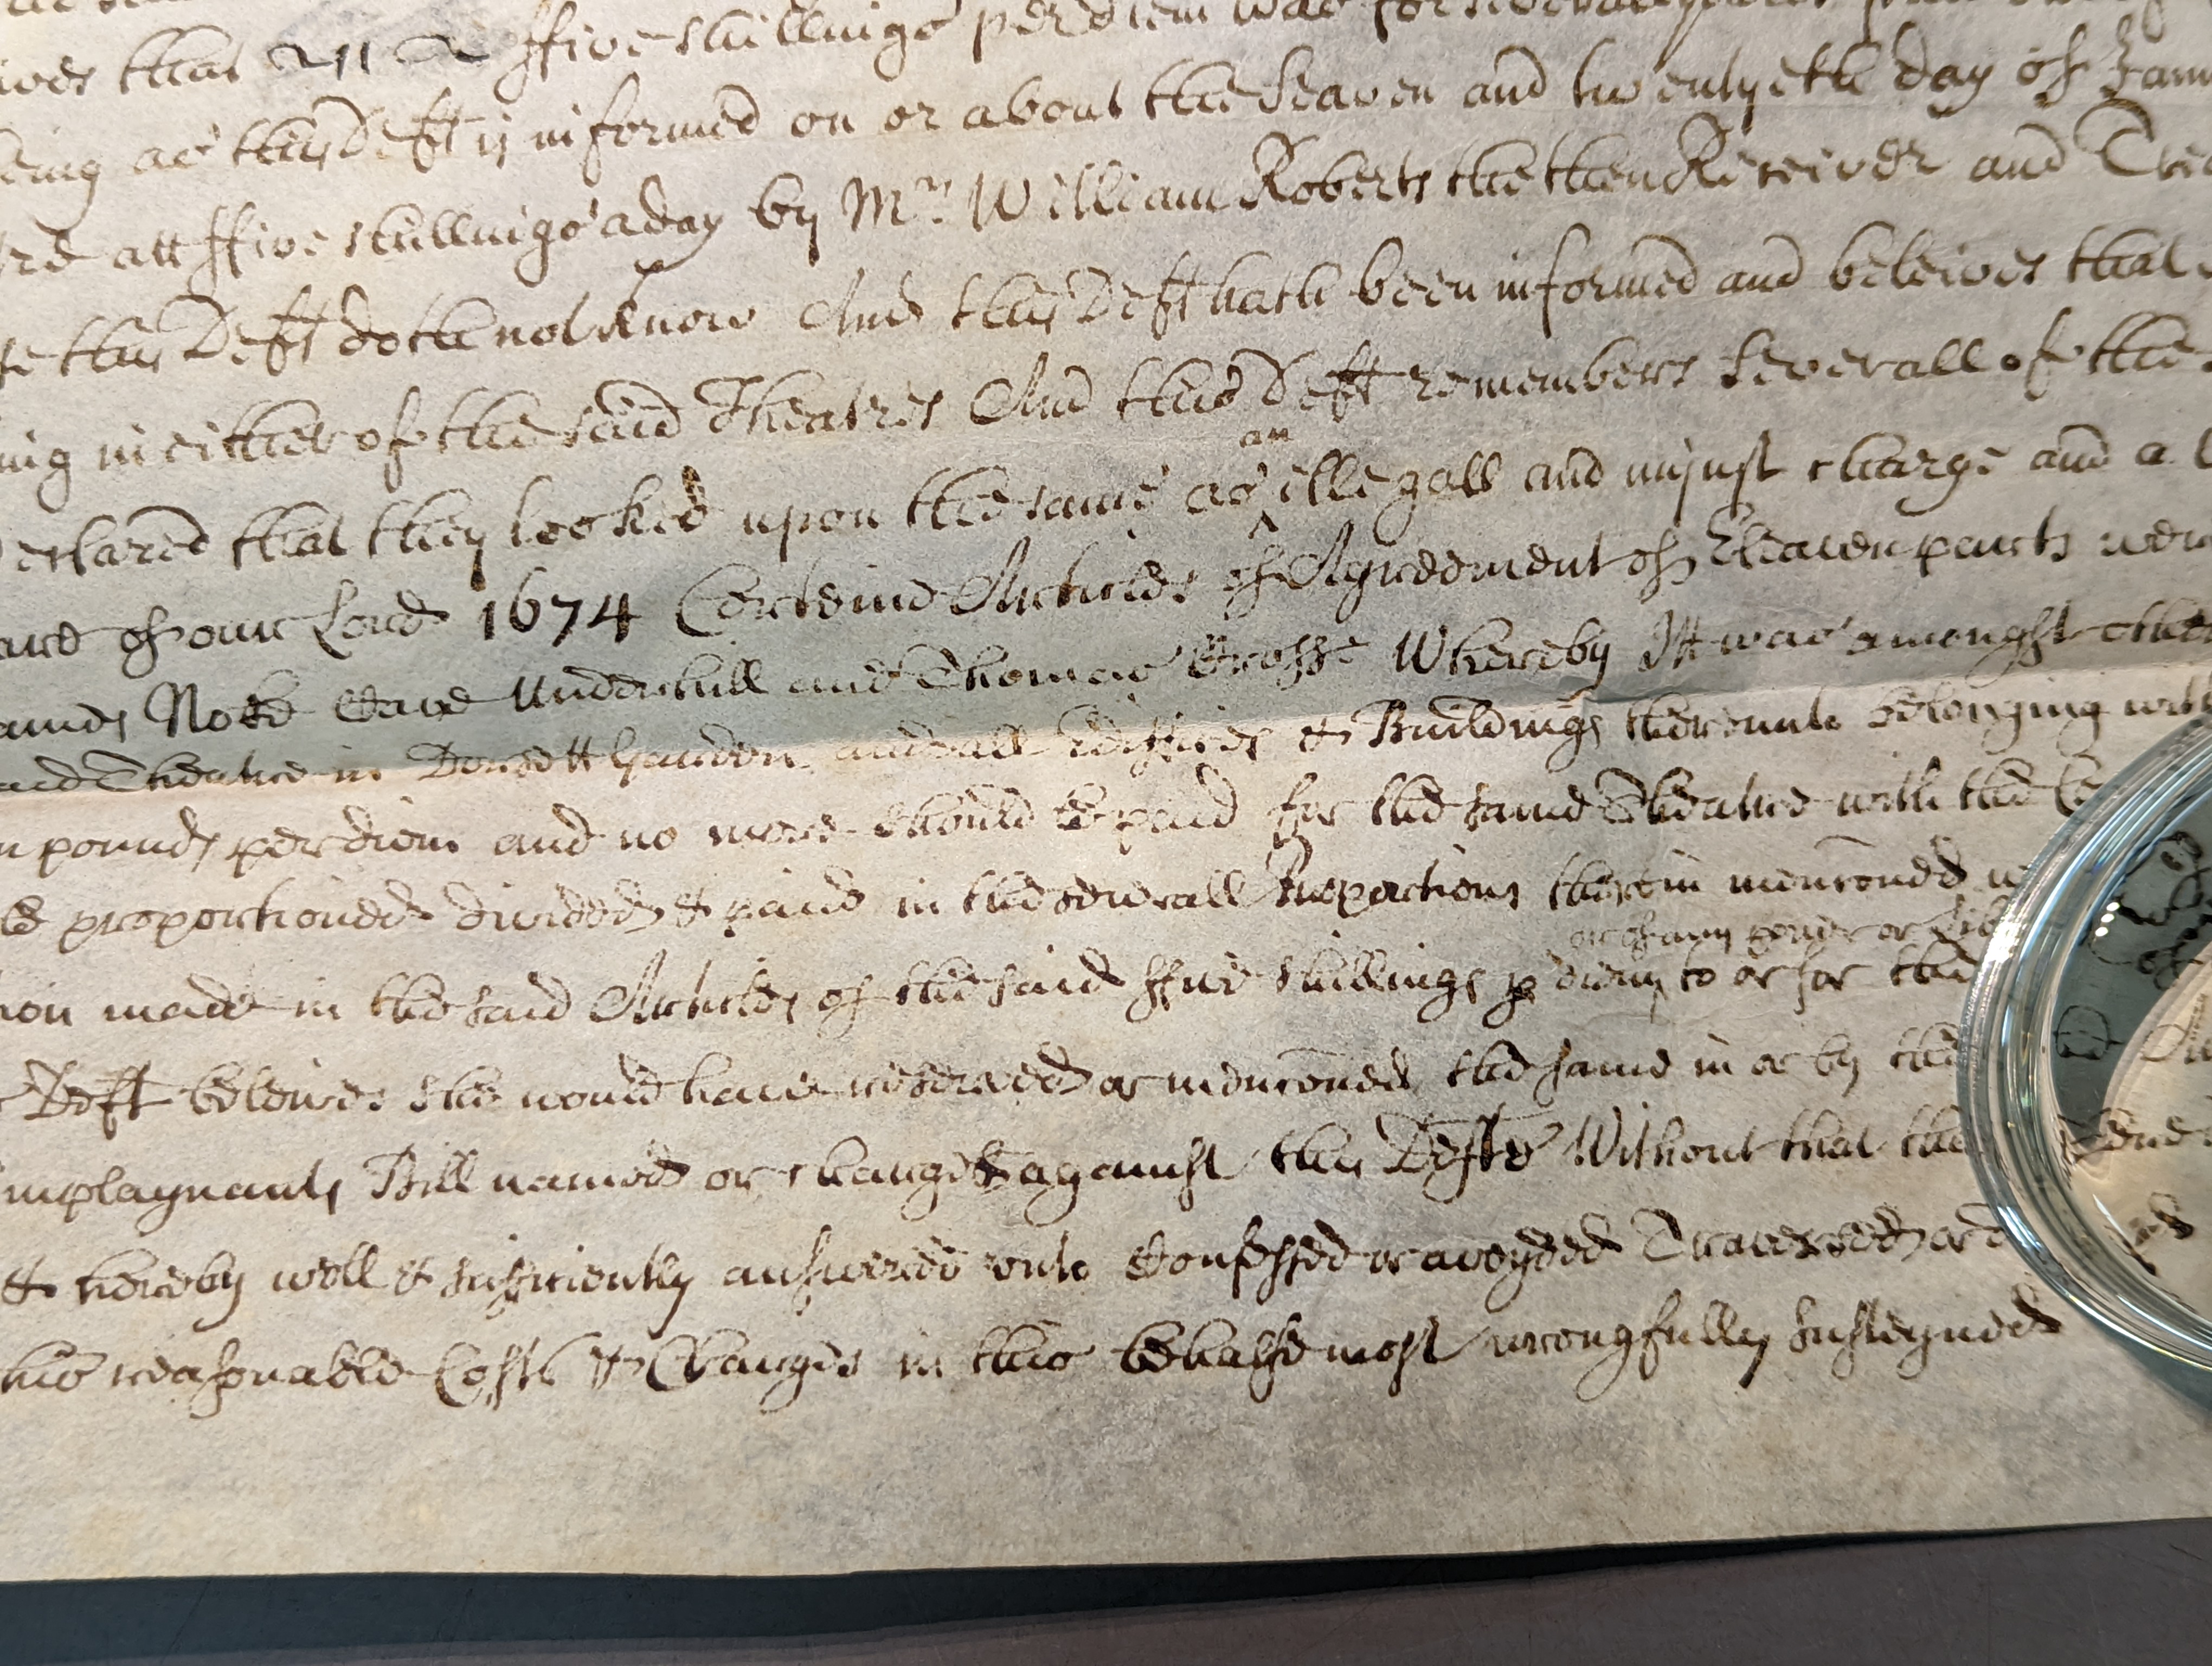 that ffive shillings per diem was for
as this Deft is informed on or about the seaven and twentyeth day of Janu
att ffive shillings a day by Mr. William Roberts the then Receiver and Trea
this Deft doth not know And this Deft hath been informed and beleives that
ing in either of the said Theatres And this Deft remembers severall of the
eclared that they looked upon the same as an illegall and unjust charge and a
of our Lord 1674 Certeine Articles of Agreement of Eleaven parts were
Noke Cave Underhill and Thomas Crosse Whereby Itt was amongst other
Theatre in Dorsett Garden and all Ediffices & Buildings thereunto belonging with
n pounds per diem and no more should be paid for the same Theatre with the
be proportioned divided & paid in the severall Proportions therein menconed
or of any
ion made in the said Articles of the said ffive shillings p diem to or for the
Deft beleives she would have reserved or menconed the same in or by the
mplaynants Bill named or charged against this Deft Without that
& hereby well & sufficiently answered unto Confessed or avoyded Traversed or d
his reasonable Costs & Charges in this behalfe most wrongfully susteyned